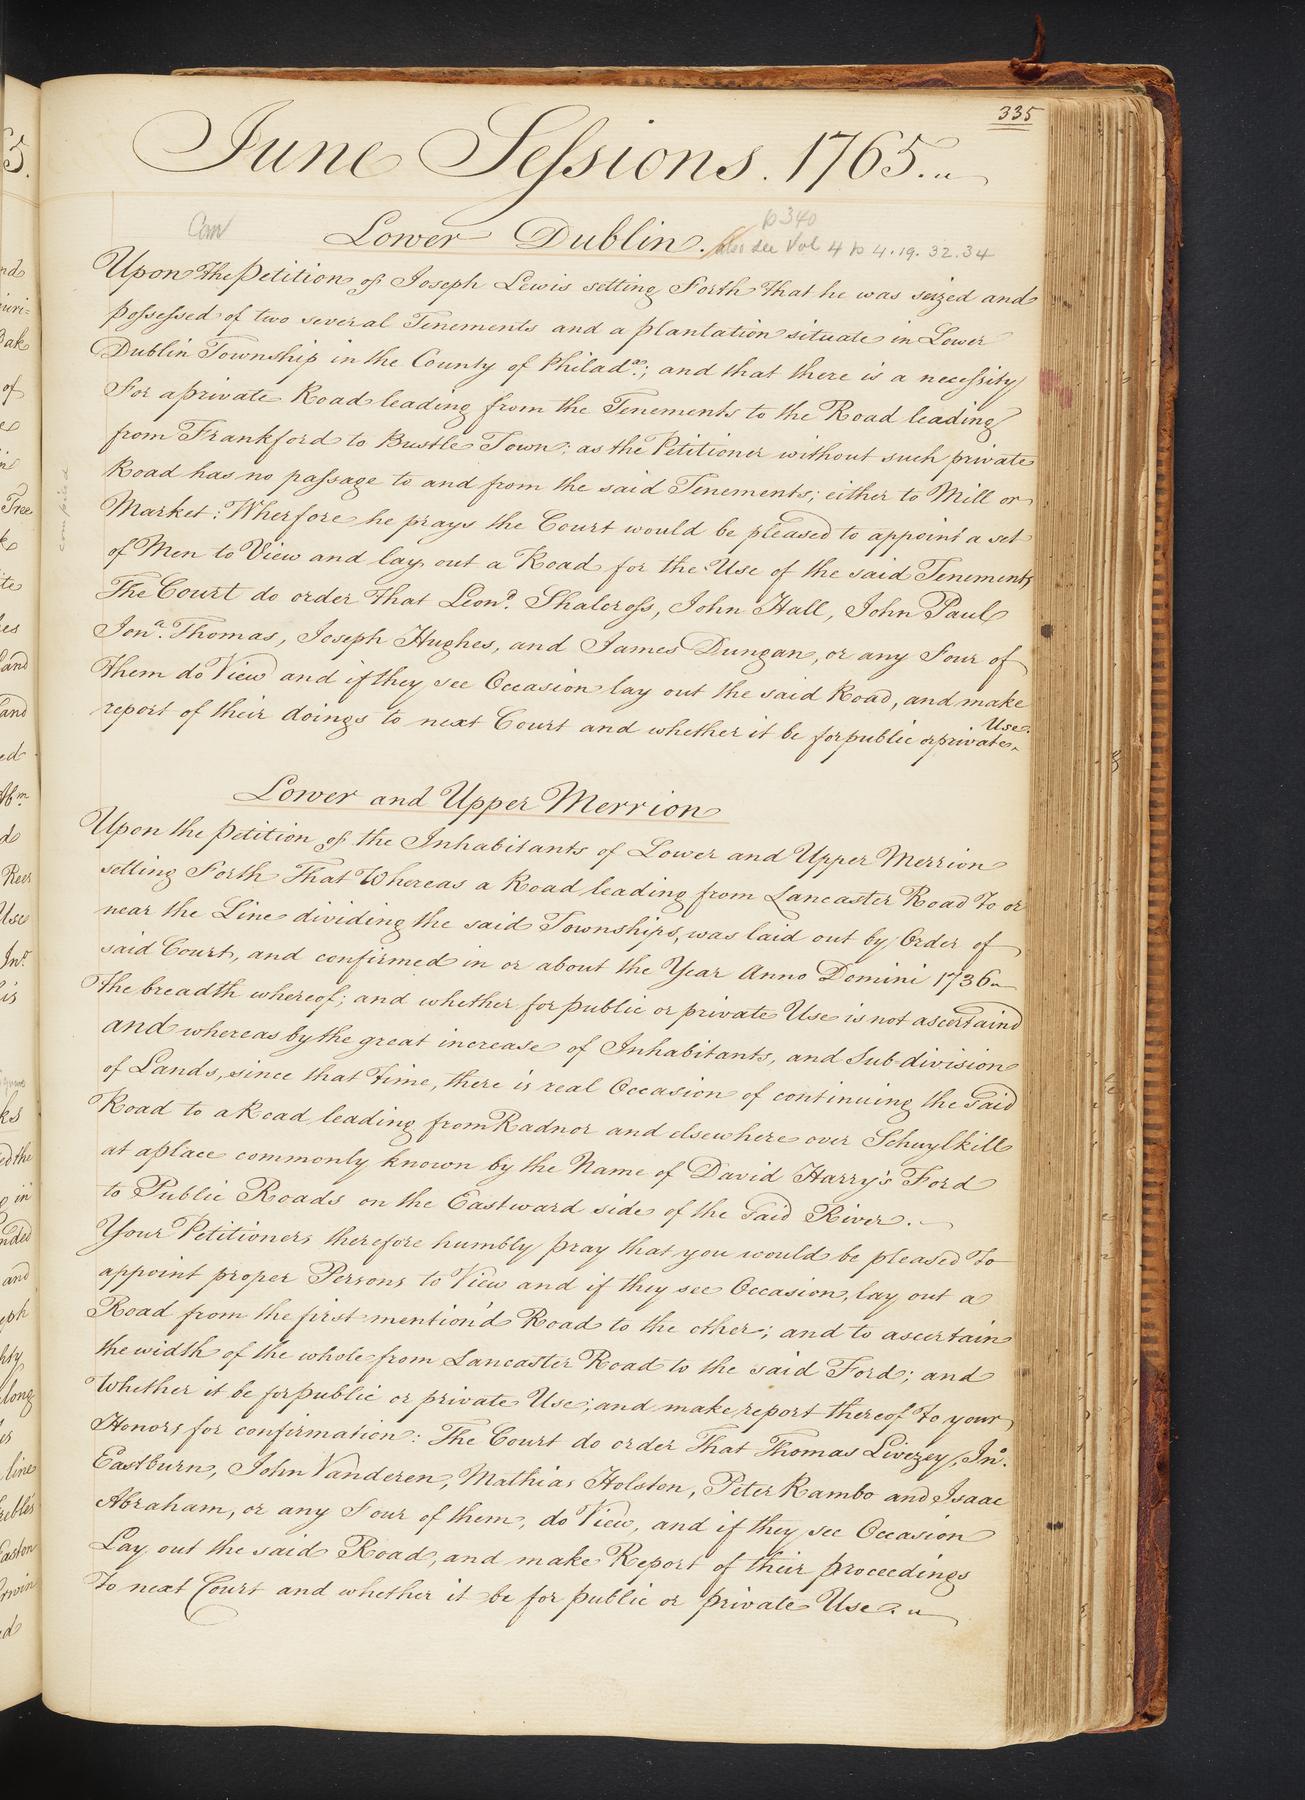 335
June Sessions. 1765.
Con
p 340
Lower Dublin.
also see Vol 4 p 4.19.32.34
Upon the petition of Joseph Lewis setting Forth that he was seized and
possessed of two several Tenements and a plantation situate in Lower
Dublin Township in the County of Philada.; and that there is a necessity
For a private Road leading from the Tenements to the Road leading
from Frankford to Bustle Town; as the Petitioner without such private
Road has no passage to and from the said Tenements; either to Mill or
Market: Wherfore he prays the Court would be pleased to appoint a set
of Men to View and lay out a Road for the Use of the said Tenements
The Court do order that Leond. Shalcross, John Hall, John Paul
Jona. Thomas, Joseph Hughes, and James Dungan, or any Four of
them do View and if they see Occasion lay out the said Road, and make
report of their doings to next Court and whether it be for public or private
Use.
compiled
Lower and Upper Merrion
Upon the petition of the Inhabitants of Lower and Upper Merrion
setting Forth That Whereas a Road leading from Lancaster Road to or
near the Line dividing the said Townships, was laid out by Order of
said Court, and confirmed in or about the Year Anno Domini 1736
the breadth whereof; and whether for public or private Use is not ascertaind
and whereas by the great increase of Inhabitants, and Sub-division
of Lands, since that time, there is real Occasion of continuing the said
Road to a Road leading from Radnor and elsewhere over Schuylkill
at a place commonly known by the Name of David Harry's Ford
to Public Roads on the Eastward side of the said River.
Your Petitioners therefore humbly pray that you would be pleased to
appoint proper Persons to View and if they see Occasion, lay out a
Road from the first mention'd Road to the other; and to ascertain
the width of the whole from Lancaster Road to the said Ford; and
Whether it be for public or private Use; and make report thereof to your
Honors for confirmation: The Court do order That Thomas Livezey, Jno.
Eastburn, John Vanderen, Mathias Holston, Peter Rambo and Isaac
Abraham, or any Four of them, do View, and if they see Occasion
Lay out the said Road, and make Report of their proceedings
To next Court and whether it be for public or private Use.